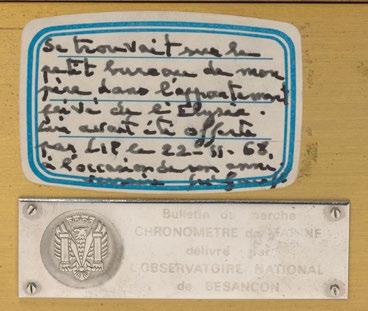 Se trouvait sur le
petit bureau de mon
père dans l'appartement
privé de l'Elysée.
Lui avait été offerte
par LIP le 22-11-68
à l'occasion de son anni-
Bulletin de marche
CHRONOMETRE de MARINE
délivré par
L'OBSERVATOIRE NATIONAL
de BESANÇON